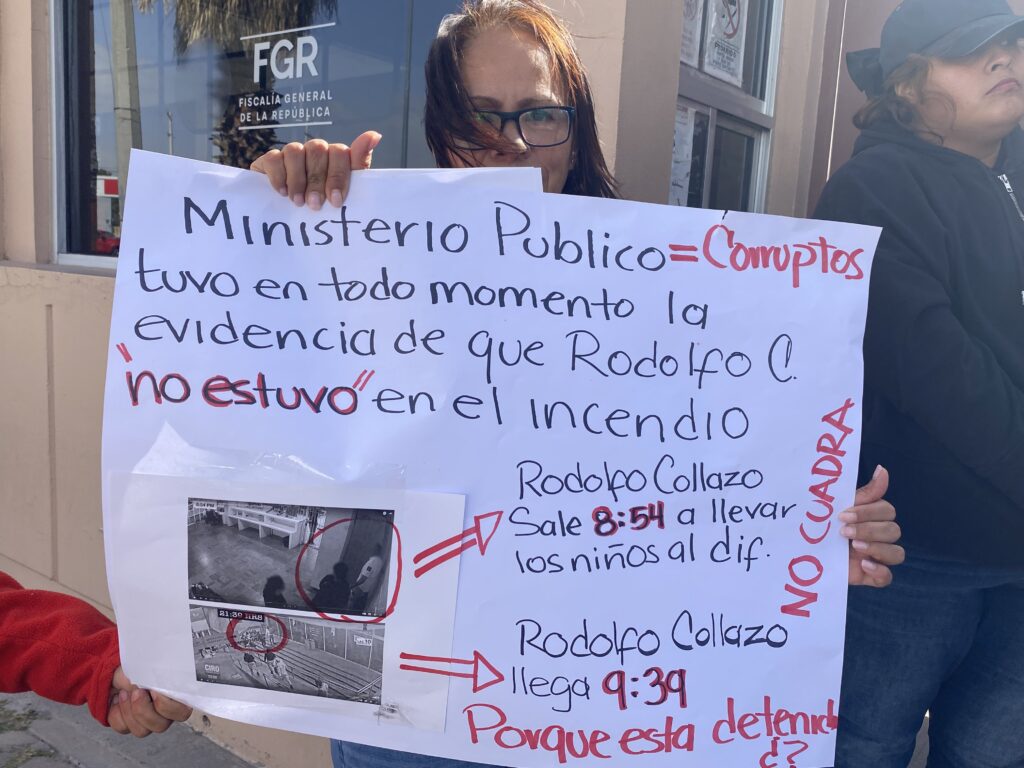 FGR
FISCALÍA GENERAL
DE LA REPÚBLICA
Ministerio Publico = Corruptos
tuvo en todo momento la
evidencia de que Rodolfo C.
"no estuvo" en el incendio
NO CUADRA
8:54 PM
Rodolfo Collazo
Sale 8:54 a llevar
los niños al dif.
21:39 HRS
CIRO
Rodolfo Collazo
llega 9:39
Porque esta detenido
¿?